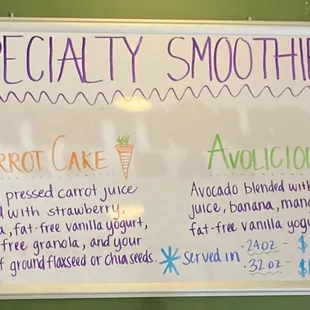 PECIALTY SMOOTHIE
RROT CAKE
pressed carrot juice
d with strawberry,
a, fat-free vanilla yogurt,
free granola, and your
f ground flaxseed or chia seeds.
AVOLICIOU
Avocado blended with
juice, banana, mang
fat-free vanilla yogu
* served in
· 24oz - $
· 32oz - $